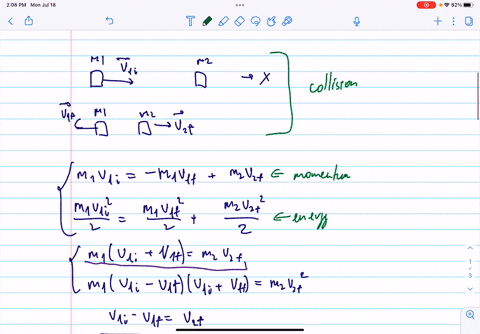 2:06 PM Mon Jul 18
82%
m1 m2
V1i
→ X
collision
m1 m2
V1f V2f
m1 V1i = -m1 V1f + m2 V2f ← momentum
m1 V1i² / 2 = m1 V1f² / 2 + m2 V2f² / 2 ← energy
m1 (V1i + V1f) = m2 V2f
m1 (V1i - V1f) (V1i + V1f) = m2 V2f²
V1i - V1f = V2f